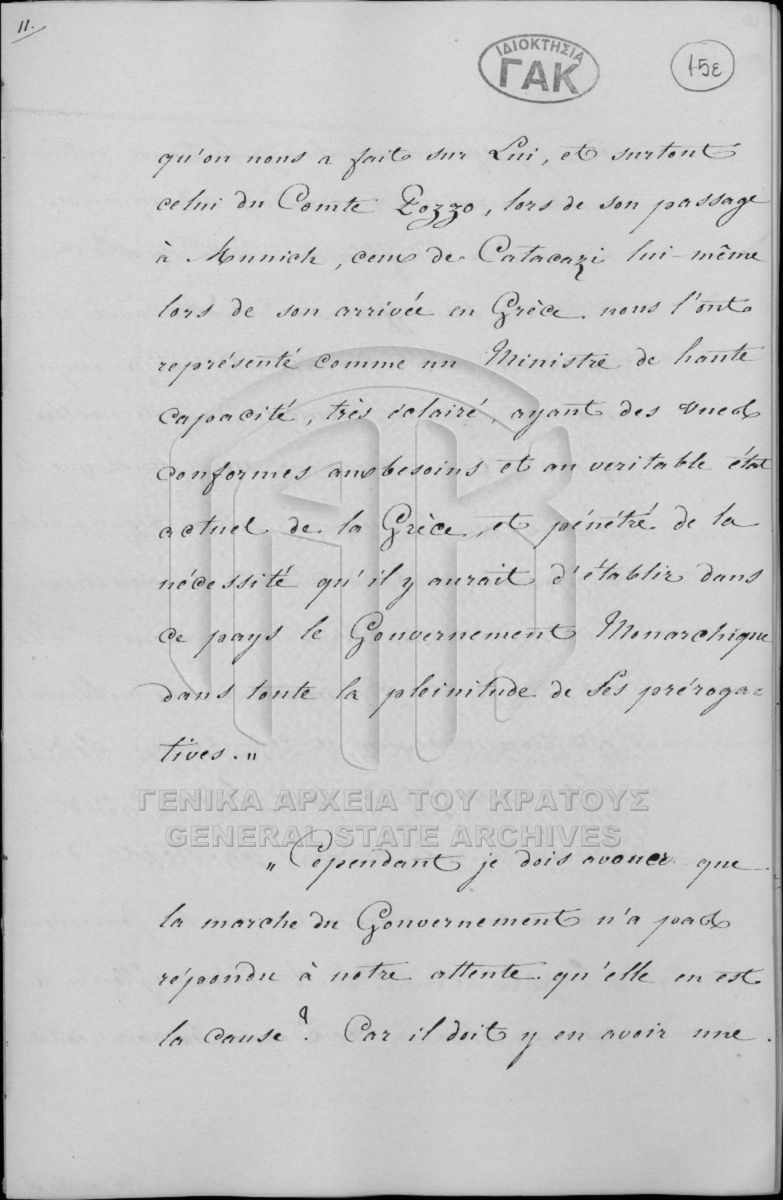 11.
ΙΔΙΟΚΤΗΣΙΑ
ΓΑΚ
15ε
qu'on nous a fait sur Lui, et surtout
celui du Comte Pozzo, lors de son passage
à Munich, ceux de Catacazi lui-même
lors de son arrivée en Grèce nous l'ont
représenté comme un Ministre de haute
capacité, très éclairé, ayant des vues
conformes aux besoins et au veritable état
actuel de la Grèce, et pénétré de la
nécessité qu'il y aurait d'établir dans
ce pays le Gouvernement Monarchique
dans toute la pleinitude de ses préroga=
tives."
ΓΕΝΙΚΑ ΑΡΧΕΙΑ ΤΟΥ ΚΡΑΤΟΥΣ
GENERAL STATE ARCHIVES
"Cependant je dois avouer que
la marche du Gouvernement n'a pas
répondu à notre attente. qu'elle en est
la cause? Car il doit y en avoir une.